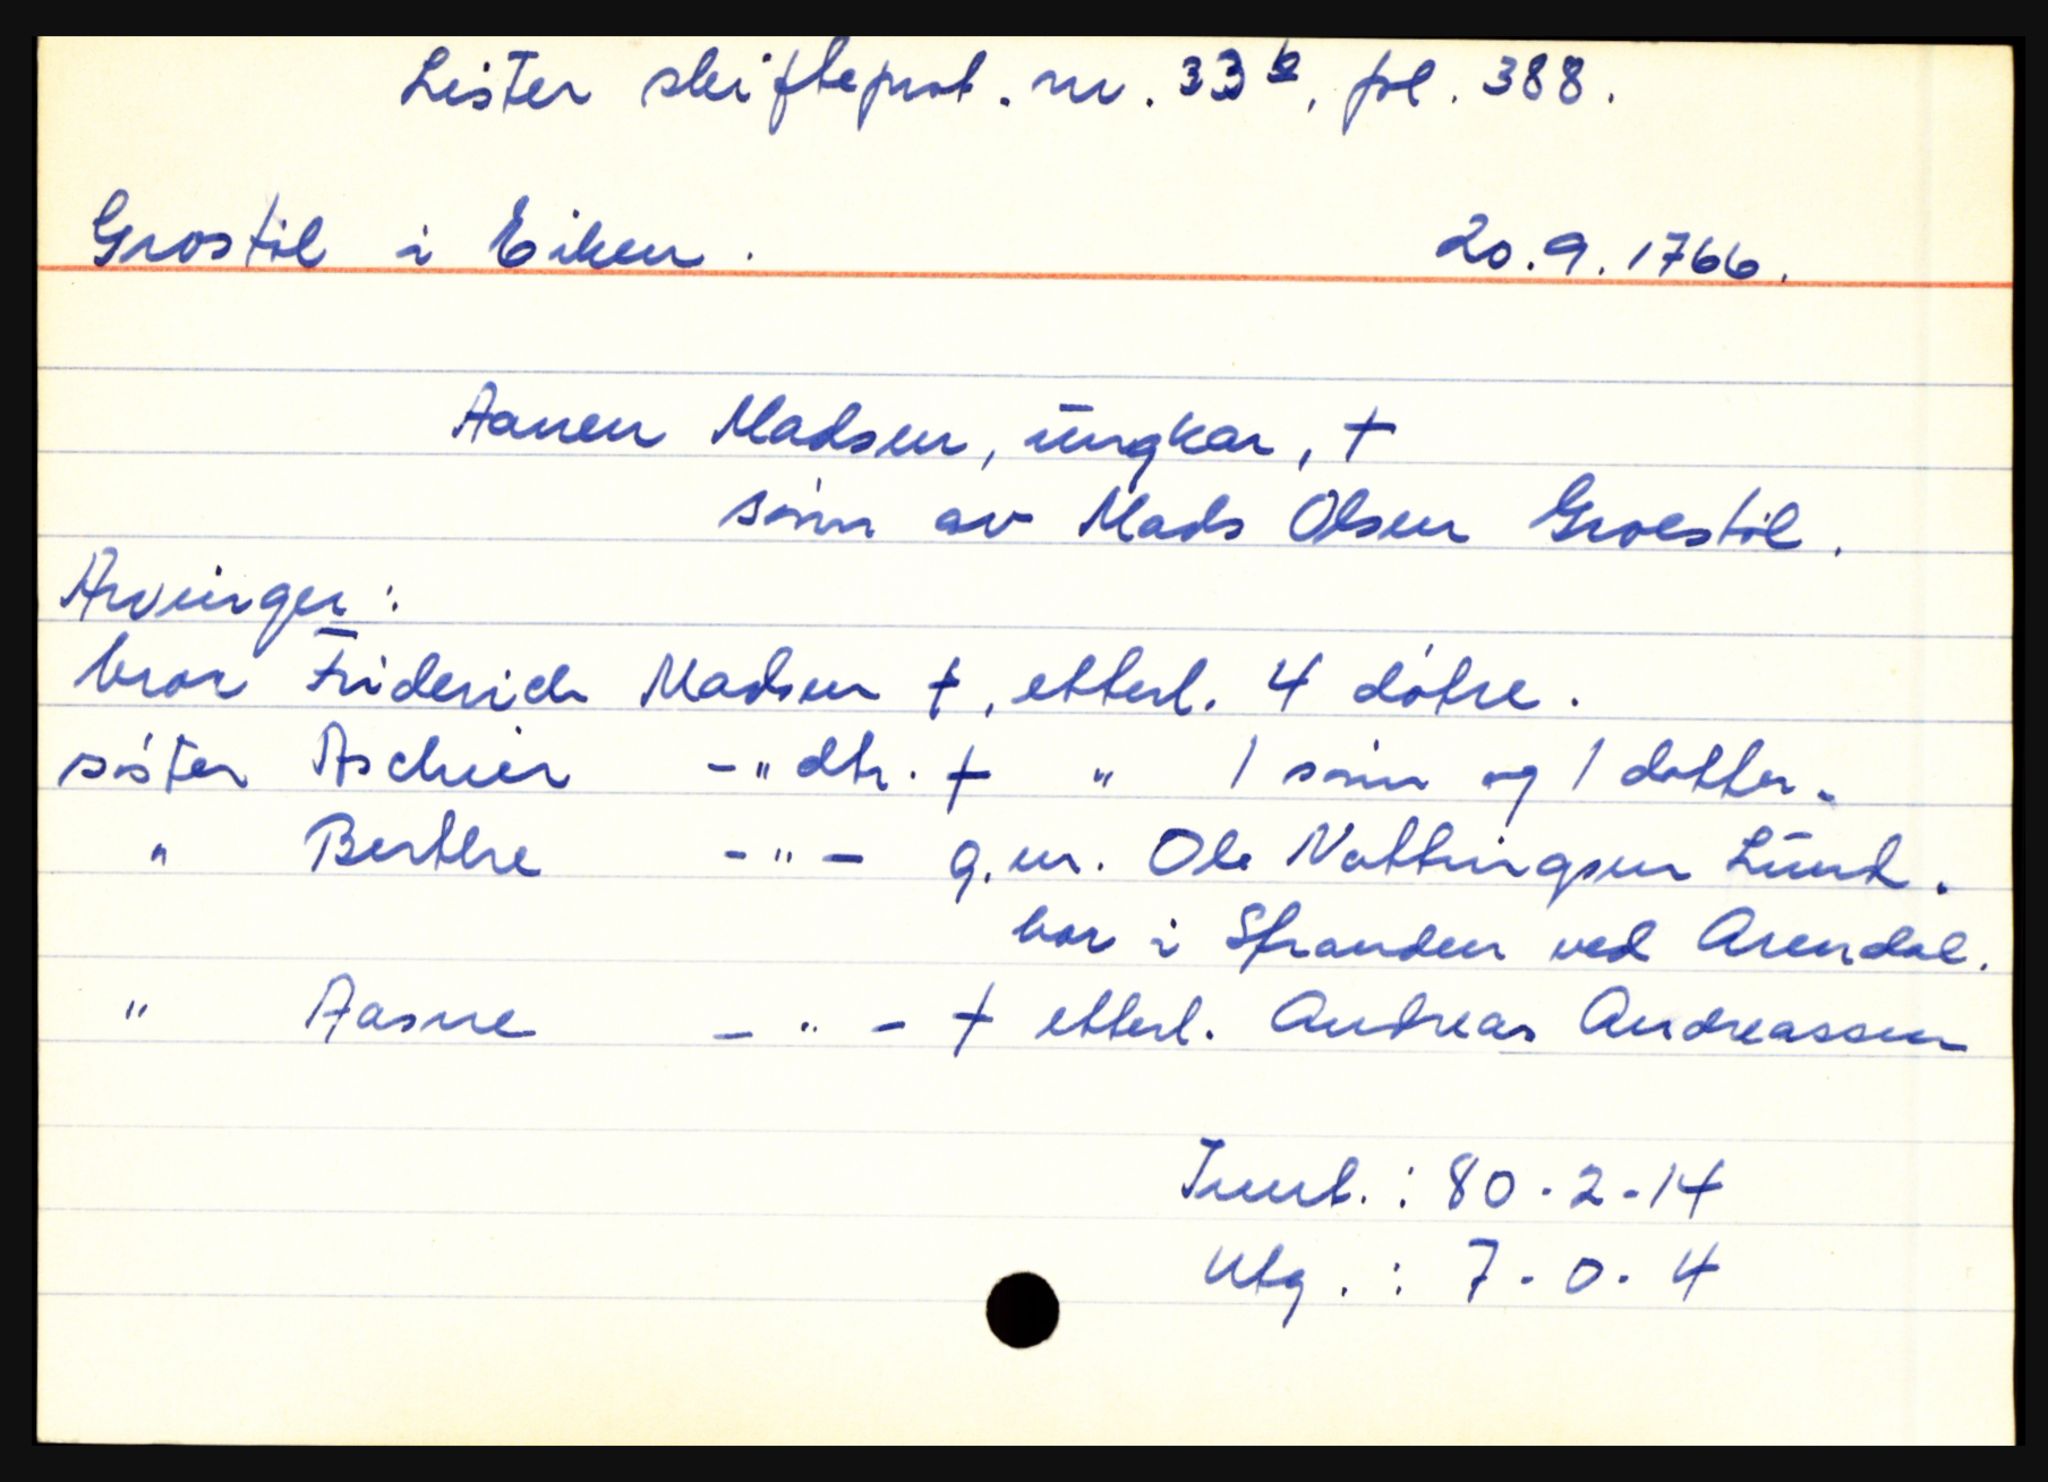 Lister skifteprot. nr. 33b, fol. 388.
Grostöl i Eiken. 20.9.1766.
Aanen Madsen, ungkar, †
sönn av Mads Olsen Groestöl.
Arvinger:
bror Friderich Madsen †, etterl. 4 dötre.
söster Aschier -"dtr. † " 1 sönn og 1 datter.
" Berthe -"- g.m. Ole Nottingsen Lund.
bor i Stranden ved Arendal.
" Aasne -"- † etterl. Andreas Andreassen
Innb.: 80-2-14
Utg.: 7-0-4